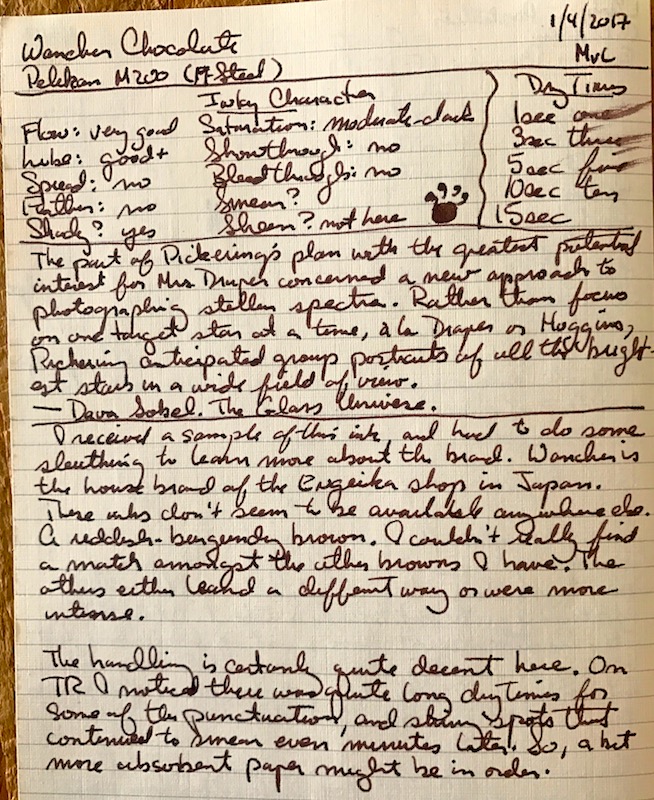 1/4/2017
Wancher Chocolate
MvL
Pelikan M200 (M-Steel)
Inky Character
Dry Times
Flow: very good
Saturation: moderate-dark
1sec one
Lube: good+
Showthrough: no
3sec three
Spread: no
Bleedthrough: no
5sec five
Feather: no
Smear?
10sec ten
Shady? yes
Sheen? not here
15sec
The part of Pickering's plan with the greatest potential
interest for Mrs Draper concerned a new approach to
photographing stellar spectra. Rather than focus
on one target star at a time, à la Draper or Huggins,
Pickering anticipated group portraits of all the bright-
est stars in a wide field of view.
— Dava Sobel. The Glass Universe.
I received a sample of this ink, and had to do some
sleuthing to learn more about the brand. Wancher is
the house brand of the Engeika shop in Japan.
These inks don't seem to be available anywhere else.
A reddish-burgundy brown. I couldn't really find
a match amongst the other browns I have. The
others either leaned a different way or were more
intense.
The handling is certainly quite decent here. On
TR I noticed there was quite long dry times for
some of the punctuation, and shiny spots that
continued to smear even minutes later. So, a bit
more absorbent paper might be in order.